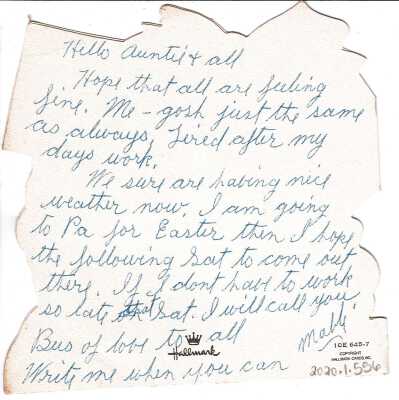 Hello Auntie & all
Hope that all are feeling
fine. Me - gosh just the same
as always, Tired after my
days work.
We sure are having nice
weather now. I am going
to Pa for Easter then I hope
the following Sat to come out
there. If I dont have to work
so late Sat. I will call you
Bus of love to all
Mable
Write me when you can
Hallmark
10E 645-7
COPYRIGHT
HALLMARK CARDS INC.
2020.1.556